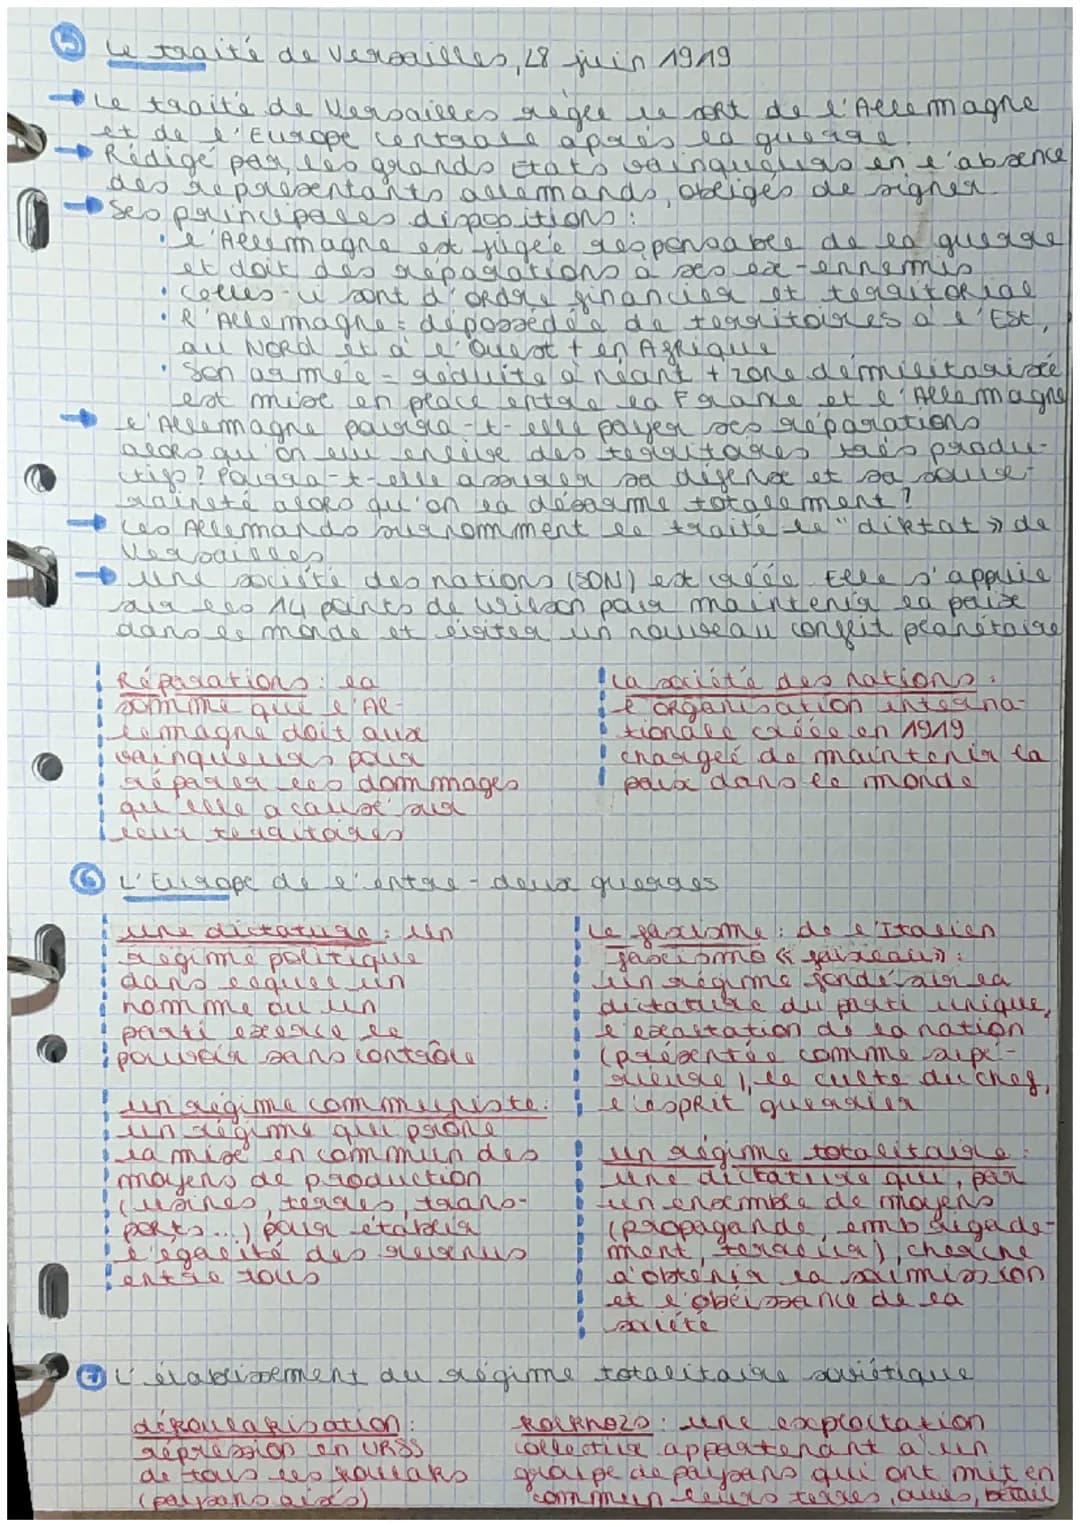 5 Le traité de Versailles, 28 juin 1919
→ Le traité de Versailles règle le sort de l'Allemagne
et de l'Europe centrale après la guerre.
→ Rédigé par les grands Etats vainqueurs en l'absence
des représentants allemands, obligés de signer.
→ Ses principales dispositions :
• l'Allemagne est jugée responsable de la guerre
et doit des réparations à ses ex-ennemis
• Celles-ci sont d'ordre financier et territorial
• l'Allemagne = dépossédée de territoires à l'Est,
au Nord et à l'Ouest + en Afrique
• Son armée = réduite à néant + zone démilitarisée
est mise en place entre la France et l'Allemagne
→ l'Allemagne pourra-t-elle payer ses réparations
alors qu'on lui enlève des territoires très produ-
ctifs ? Pourra-t-elle assurer sa défense et sa souve-
raineté alors qu'on la désarme totalement ?
→ Les Allemands surnomment le traité le "diktat » de
Versailles
→ une société des nations (SDN) est créée. Elle s'appuie
sur les 14 points de Wilson pour maintenir la paix
dans le monde et éviter un nouveau conflit planétaire
Réparations : la
somme que l'Al-
lemagne doit aux
vainqueurs pour
réparer les dommages
qu'elle a causé sur
leur territoires
La société des nations :
l'organisation interna-
tionale créée en 1919
chargée de maintenir la
paix dans le monde
6 L'Europe de l'entre-deux guerres
une dictature : un
régime politique
dans lequel un
homme ou un
parti exerce le
pouvoir sans contrôle
un régime communiste :
un régime qui prône
la mise en commun des
moyens de production
(usines, terres, trans-
ports...) pour établir
l'égalité des revenus
entre tous
Le fascisme : de l'Italien
fascismo « faisceau » :
un régime fondé sur la
dictature du parti unique,
l'exaltation de la nation
(présentée comme supé-
rieure), le culte du chef,
l'esprit guerrier
un régime totalitaire :
une dictature qui, par
un ensemble de moyens
(propagande, embrigade-
ment, terreur), cherche
à obtenir la soumission
et l'obéissance de la
société
7 L'établissement du régime totalitaire soviétique
dékoulakisation :
répression en URSS
de tous les koulaks
(paysans aisés)
Kolkhozs : une exploitation
collective appartenant à un
groupe de paysans qui ont mit en
commun leurs terres, bétail